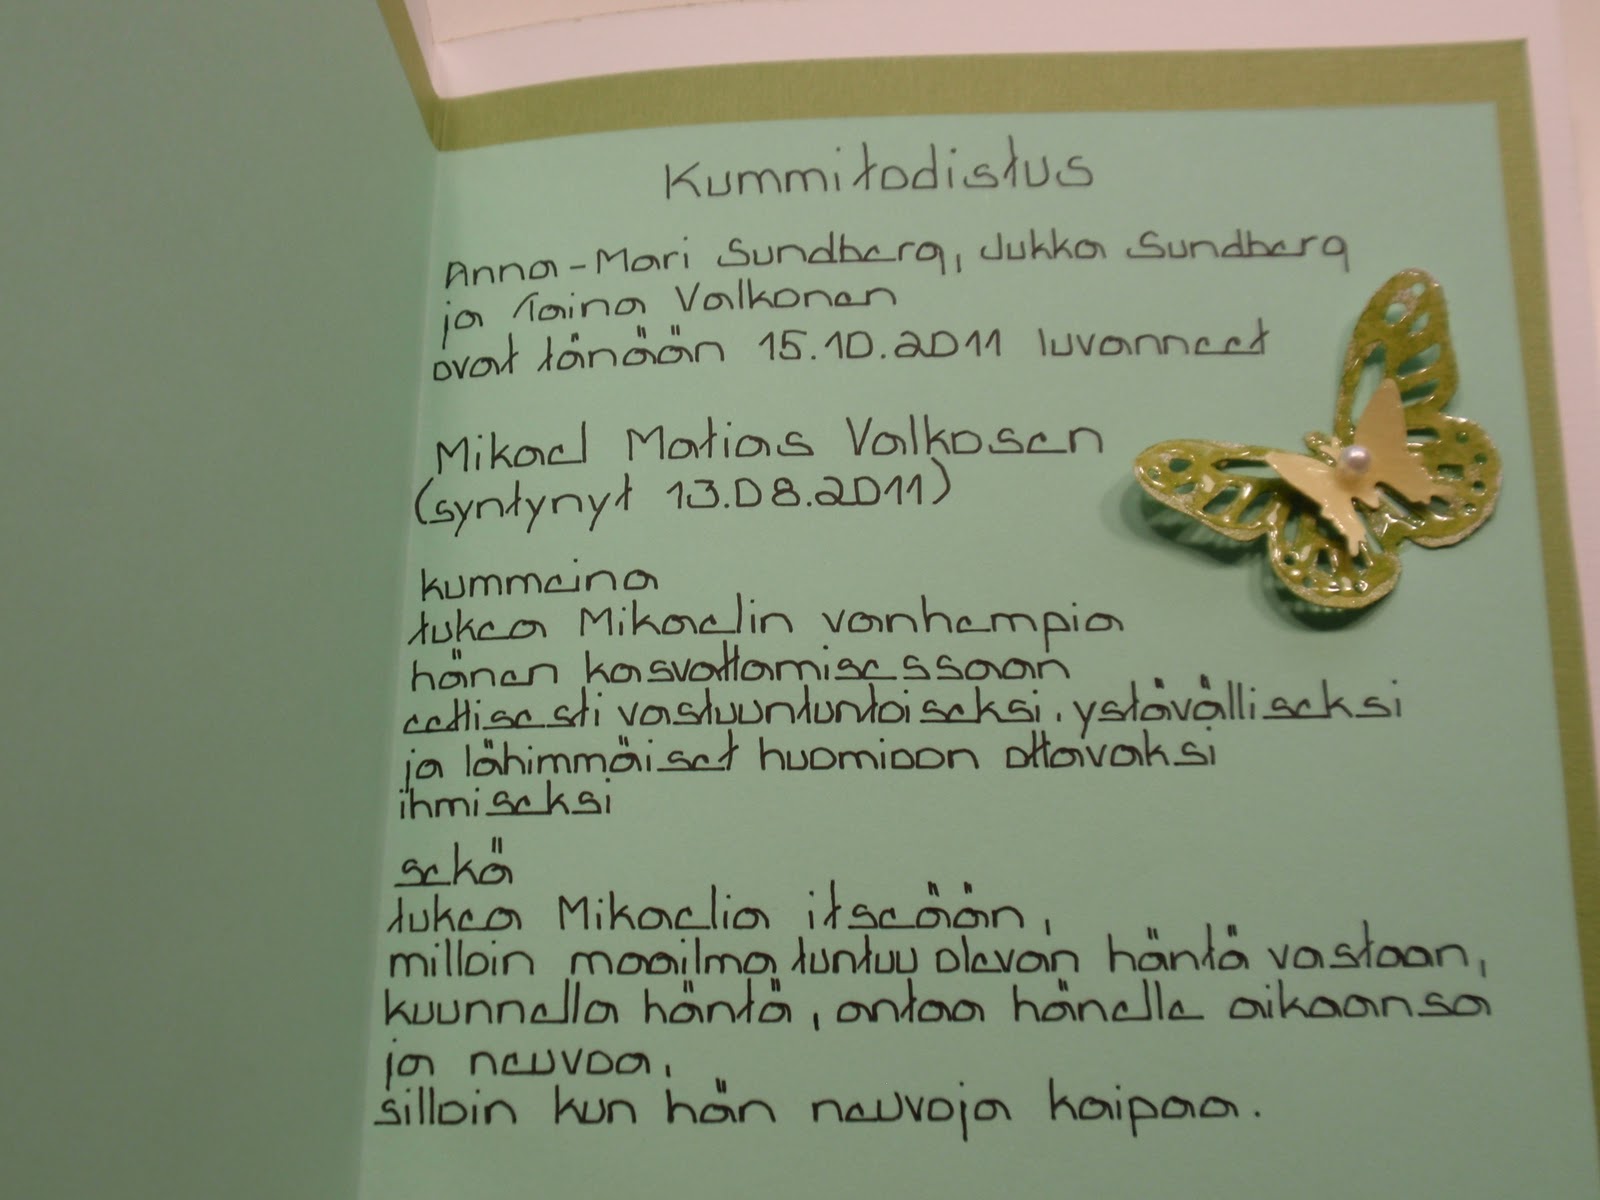 Kummitodistus
Anna-Mari Sundberg, Jukka Sundberg
ja Taina Valkonen
ovat tänään 15.10.2011 luvanneet
Mikael Matias Valkosen
(syntynyt 13.08.2011)
kummeina
tukea Mikaelin vanhempia
hänen kasvattamisessaan
eettisesti vastuuntuntoiseksi, ystävälliseksi
ja lähimmäiset huomioon ottavaksi
ihmiseksi
sekä
tukea Mikaelia itseään,
milloin maailma tuntuu olevan häntä vastaan,
kuunnella häntä, antaa hänelle aikaansa
ja neuvoa,
silloin kun hän neuvoja kaipaa.